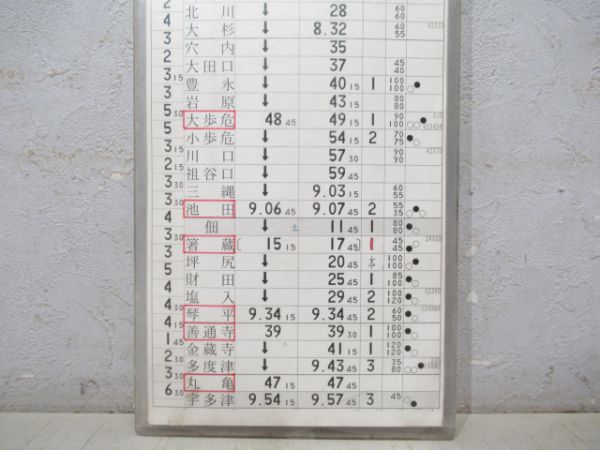 北川 ↓ 28 60 60
3 大杉 ↓ 8.32 60 55
4 穴内 ↓ 35
2 大田口 ↓ 37 45 40
3 15 豊永 ↓ 40 15 1 100 100 ○●
3 岩原 ↓ 43 15 80 80
5 30 大歩危 48 45 49 15 1 90 100 ○○●
5 小歩危 ↓ 54 15 2 70 75 ●○
3 15 川口 ↓ 57 30 90 90
2 15 祖谷口 ↓ 59 45
3 30 三縄 ↓ 9.03 15 60 55
3 30 池田 9.06 45 9.07 45 2 55 35 ●○○
4 佃 ↓ 11 45 1 80 80 ●○
3 30 箸蔵 〔 15 15 17 45〕 1 45 45 ○●
3 坪尻 ↓ 20 45 本 100 100 ●○
財田 ↓ 25 45 1 85 100 ●○
4 塩入 ↓ 29 45 2 100 120 ●○
4 30 琴平 9.34 15 9.34 45 2 60 50 ●○
4 15 善通寺 39 39 30 1 100 100 ●○
1 45 金蔵寺 ↓ 41 15 1 120 120 ●○
2 30 多度津 ↓ 9.43 45 3 35 80
3 丸亀 47 15 47 45
6 30 宇多津 9.54 15 9.57 45 3 45 ○●